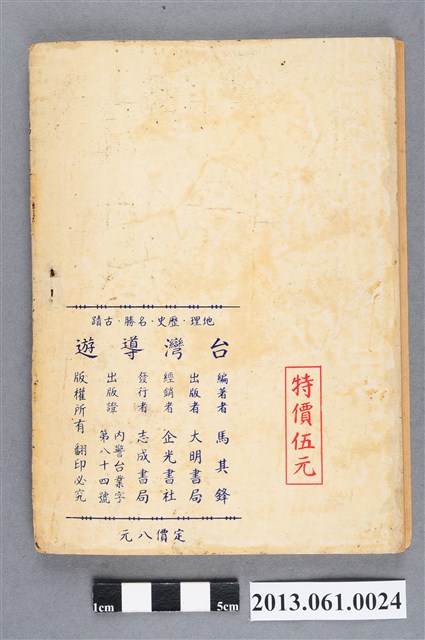 地理·歷史·名勝·古蹟
台灣導遊
編著者 馬其鋒
出版者 大明書局
經銷者 企光書社
發行者 志成書局
出版證 內警台業字第八十四號
版權所有 翻印必究
定價八元
特價伍元
1cm
5cm
2013.061.0024